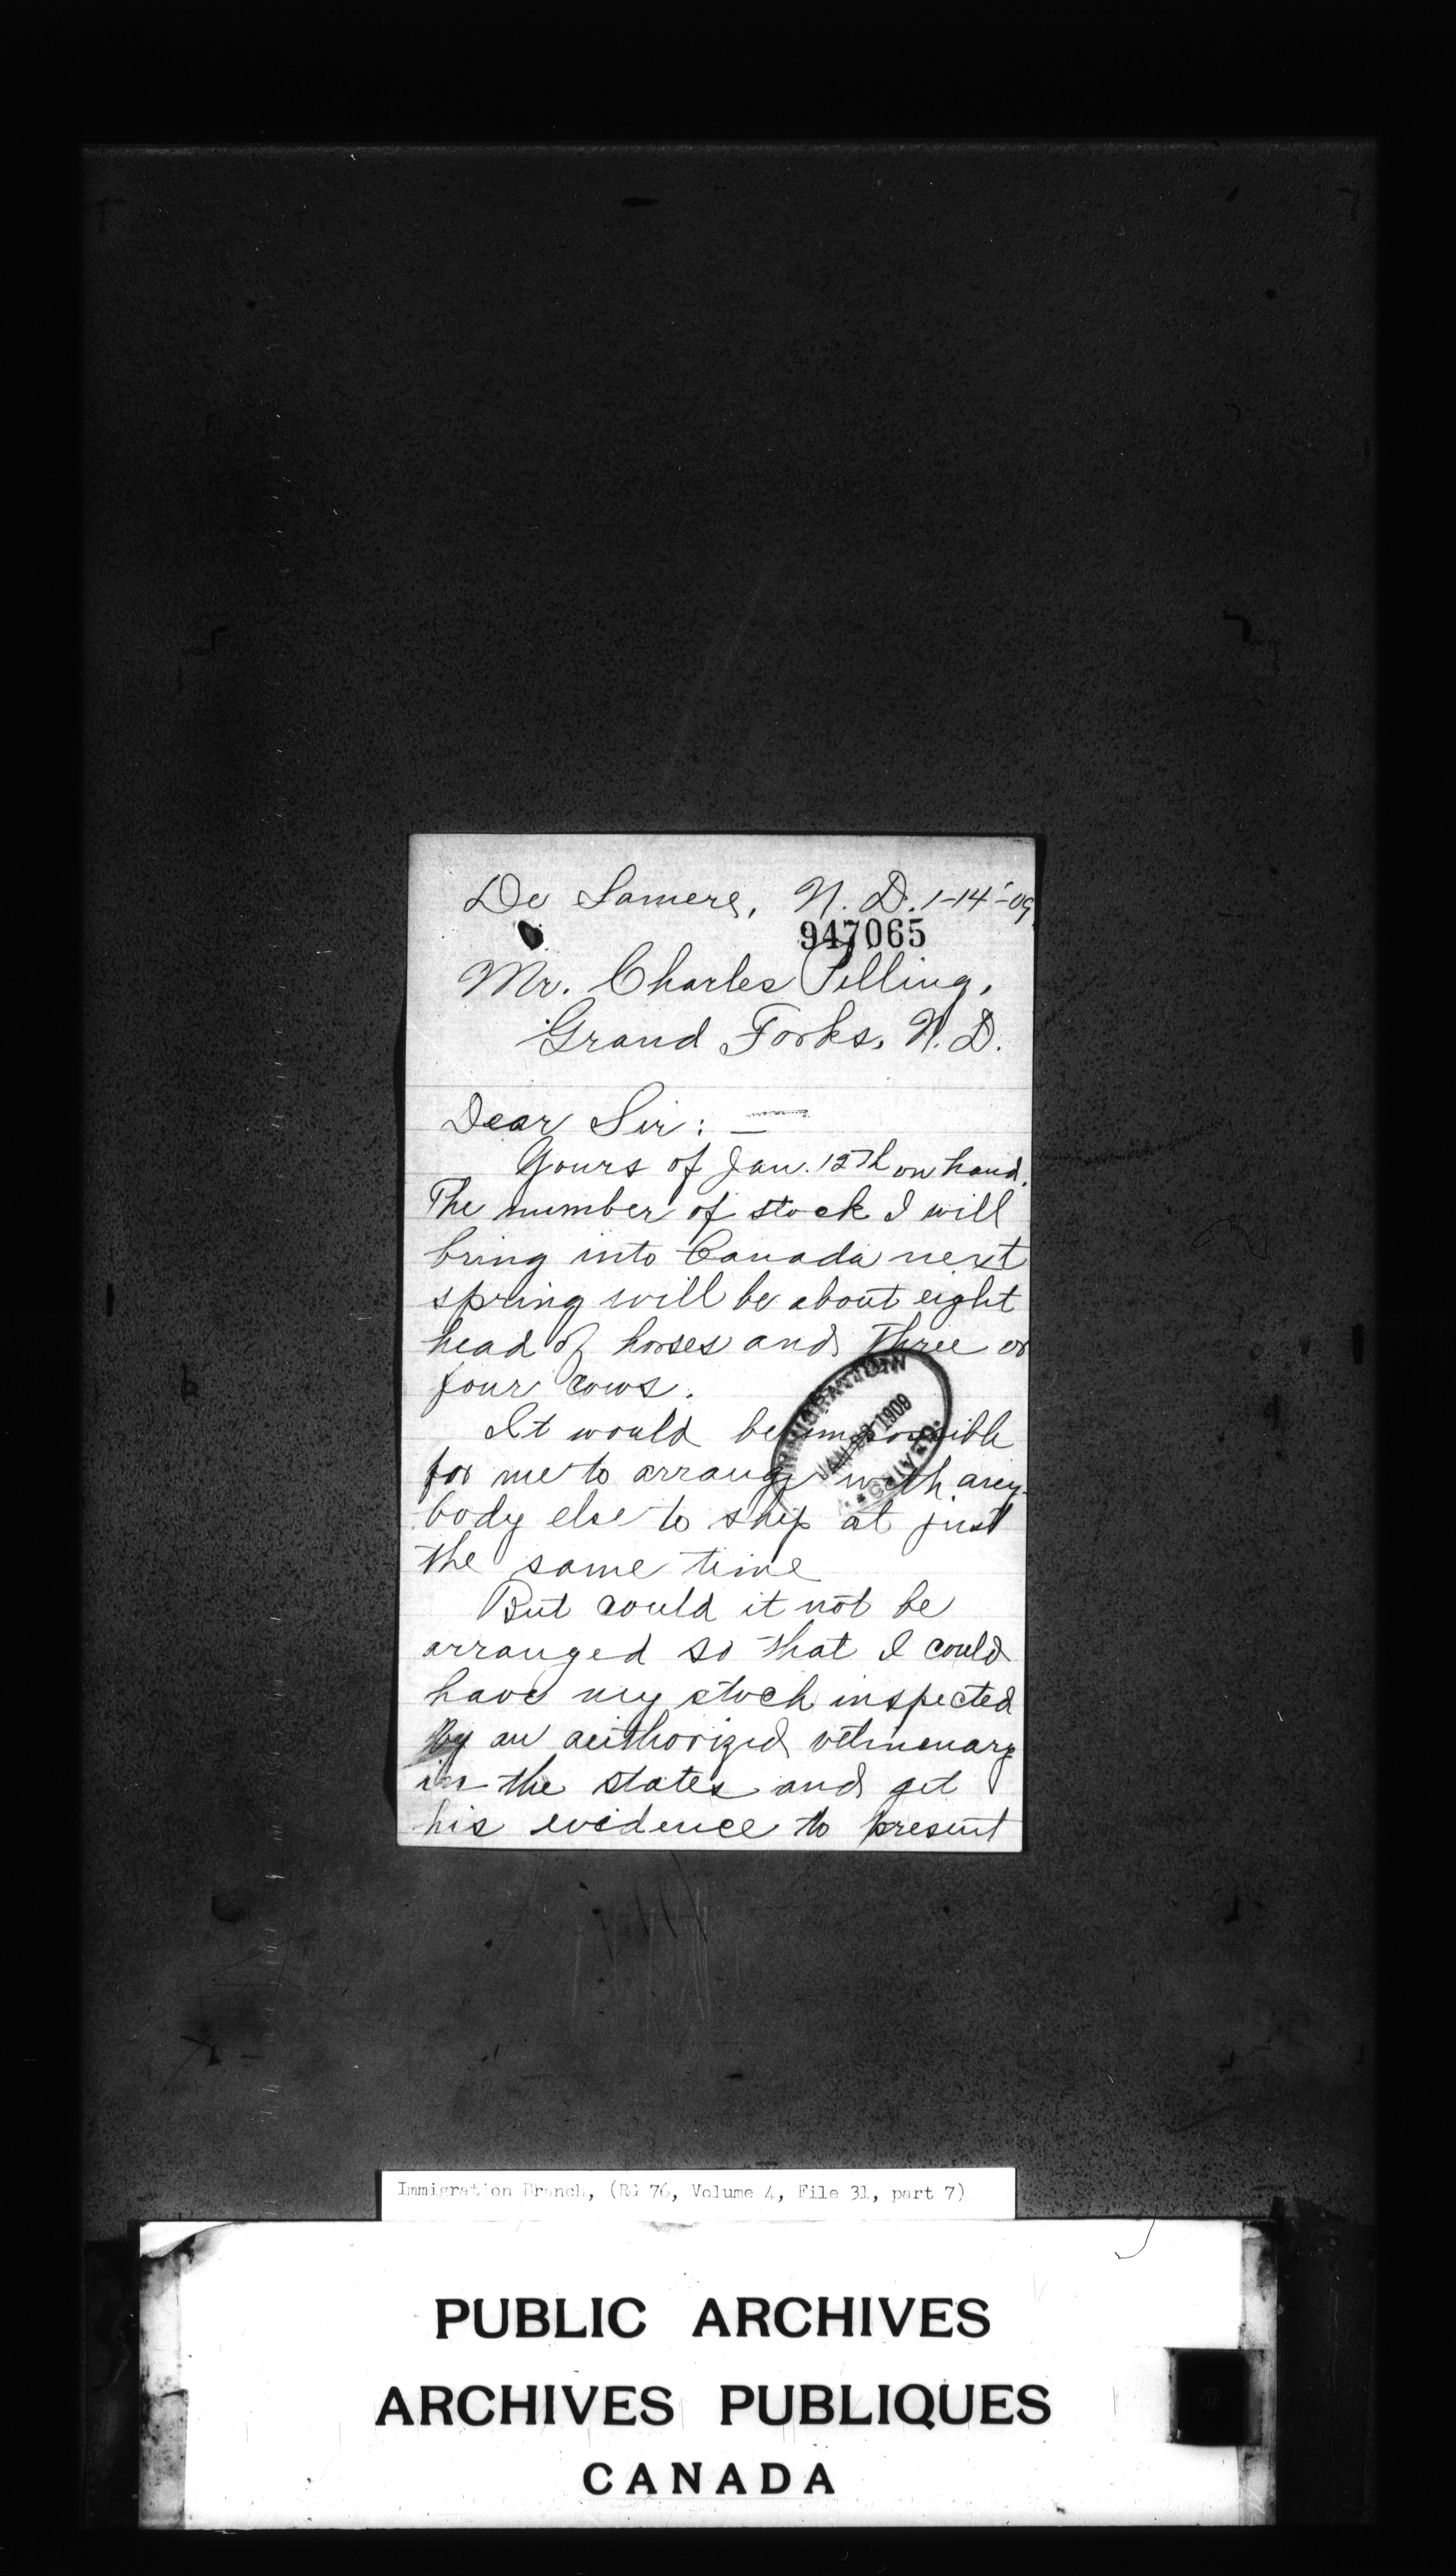 De Lamere, N. D. 1-14-'09
947065
Mr. Charles Pilling,
Grand Forks, N. D.
Dear Sir: —
Yours of Jan. 12th on hand.
The number of stock I will
bring into Canada next
spring will be about eight
head of horses and three or
four cows.
It would be impossible
for me to arrange with any-
body else to ship at just
the same time
But could it not be
arranged so that I could
have my stock inspected
by an authorized vetrinenary
in the states and get
his evidence to present
IMMIGRATION
JAN 1909
Immigration Branch, (RG 76, Volume 4, File 31, part 7)
PUBLIC ARCHIVES
ARCHIVES PUBLIQUES
CANADA